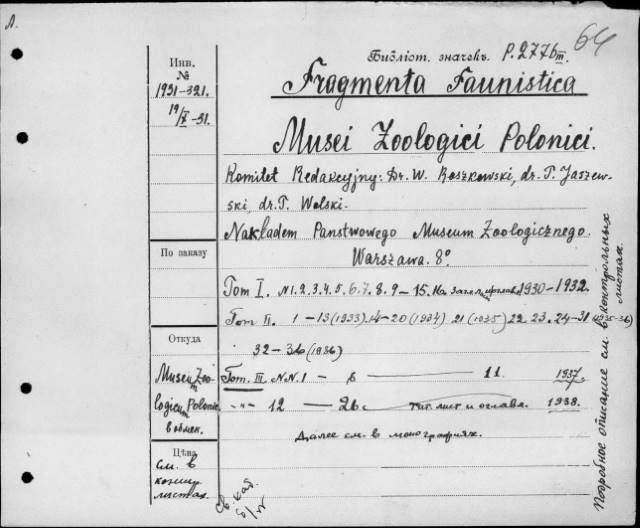 Л.
64
Инв.
№
1931-321.
19/X-31.
Библіот. значекъ. P.277b III.
Fragmenta Faunistica
Musei Zoologici Polonici.
Komitet Redakcyjny: Dr. W. Roszkowski, dr. T. Jaszew-
ski, dr. T. Wolski.
Nakładem Państwowego Museum Zoologicznego.
Warszawa. 8°
По заказу
Tom I. N 1. 2. 3. 4. 5. 6. 7. 8. 9 – 15. 1930-1932.
Tom II. 1 – 13 (1933) 14 – 20 (1934) 21 (1935) 22. 23. 24-31 (1935-36)
Откуда
32 – 36 (1936)
Musei Zoo-
logicum Polonic.
в обмен.
Tom. III N.N. 1 – 6 – 11 1937
-"- 12 – 26 тит. лист и оглавл. 1938.
Далее см. в монографиях.
Цѣна
см. в
листах.
Св. кат.
Подробное описание см. в контрольных
листах.